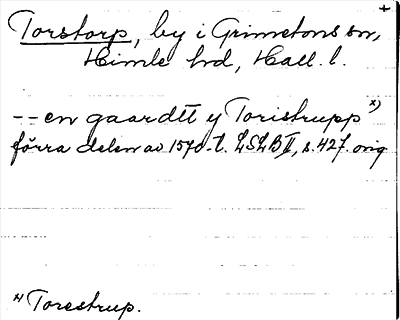 +
Torstorp, by i Grimetons sn,
Himle hd, Hall. l.
-- en gaardtt y Toristrupp x)
förra delen av 1570-t. LSLB II, s. 427. orig
x) Torestrup.